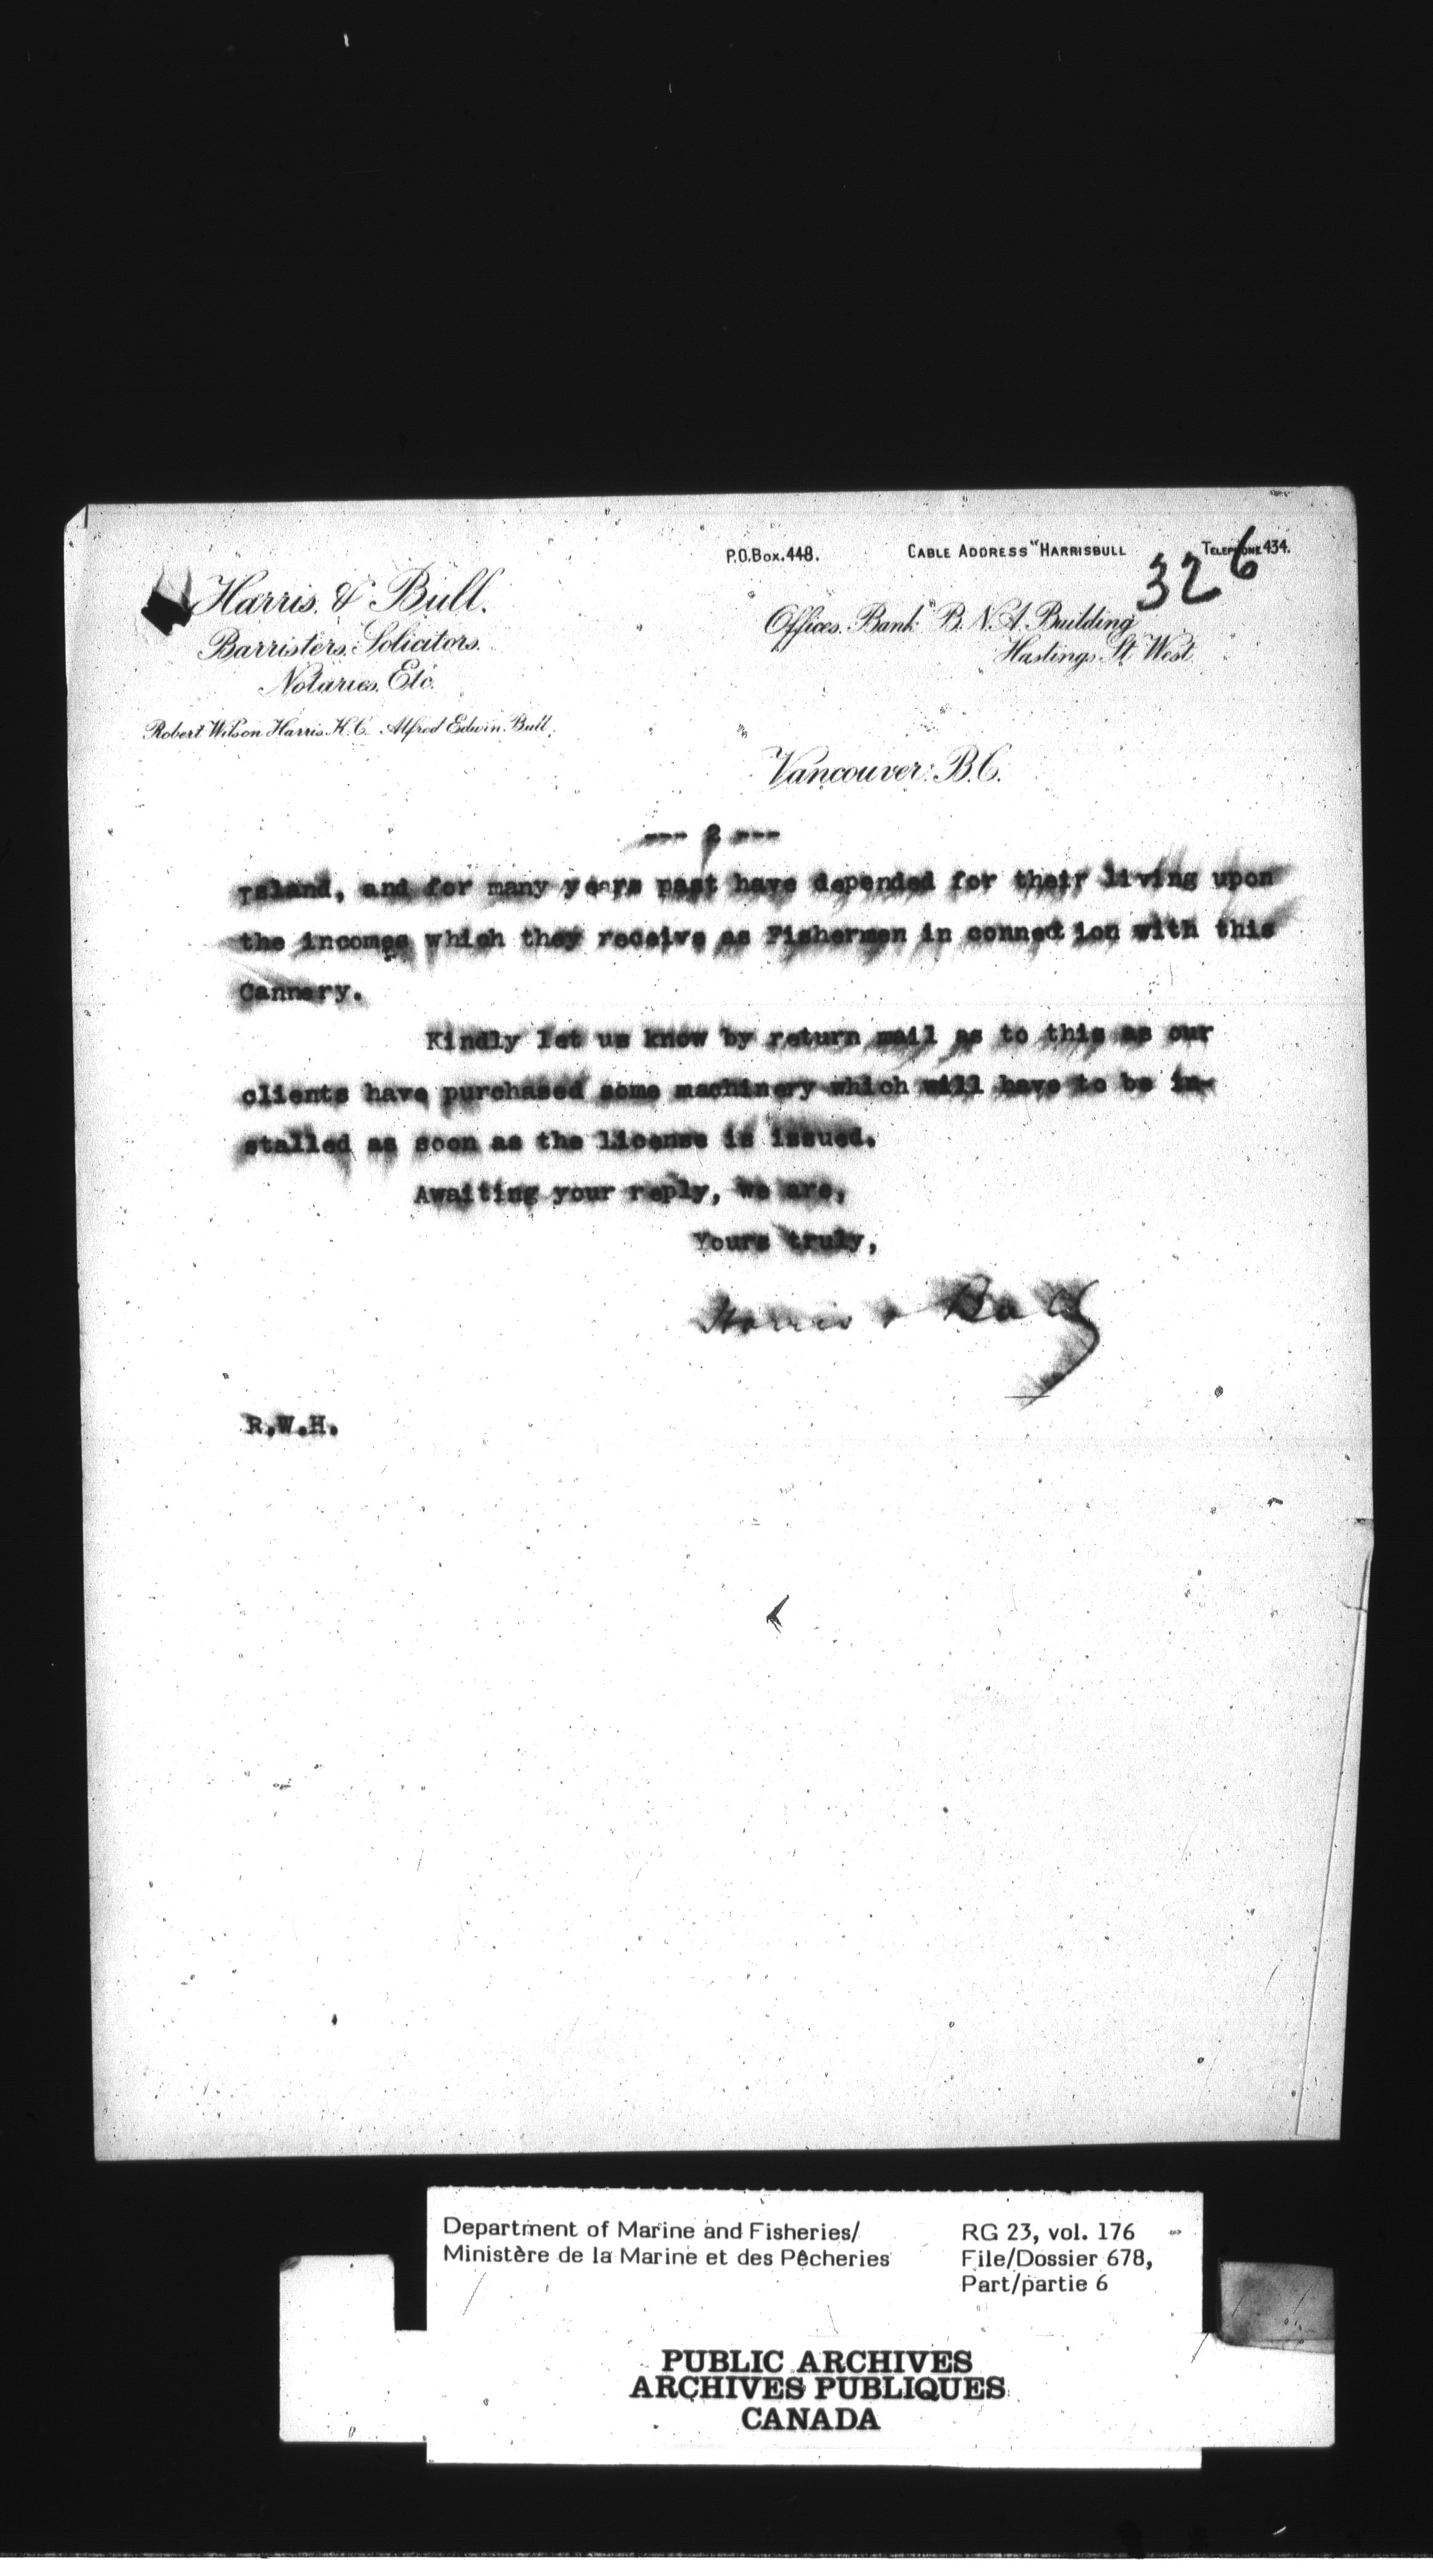 P.O.Box.448. CABLE ADDRESS "HARRISBULL TELEPHONE 434.
326
Harris & Bull.
Barristers, Solicitors,
Notaries, Etc.
Robert Wilson Harris. K.C. Alfred Edwin Bull.
Offices. Bank B. N. A. Building
Hastings St. West
Vancouver: B.C.
--- 2 ---
Island, and for many years past have depended for their living upon
the incomes which they receive as Fishermen in connection with this
Cannery.
Kindly let us know by return mail as to this as our
clients have purchased some machinery which will have to be in-
stalled as soon as the license is issued.
Awaiting your reply, we are,
Yours truly,
Harris & Bull
R.W.H.
Department of Marine and Fisheries/ RG 23, vol. 176
Ministère de la Marine et des Pêcheries File/Dossier 678,
Part/partie 6
PUBLIC ARCHIVES
ARCHIVES PUBLIQUES
CANADA